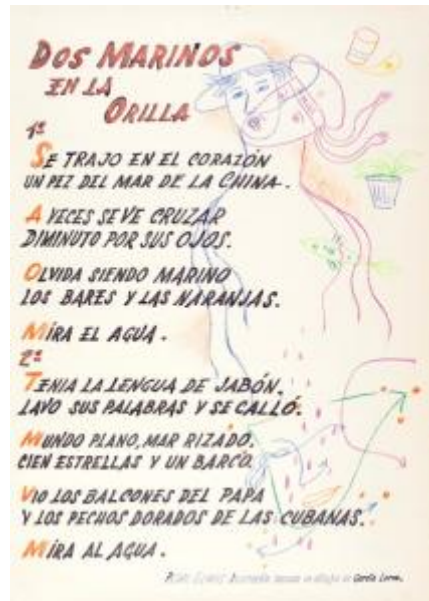 DOS MARINOS
EN LA
ORILLA
1º
SE TRAJO EN EL CORAZÓN
UN PEZ DEL MAR DE LA CHINA.
A VECES SE VE CRUZAR
DIMINUTO POR SUS OJOS.
OLVIDA SIENDO MARINO
LOS BARES Y LAS NARANJAS.
MIRA EL AGUA.
2º
TENIA LA LENGUA DE JABÓN.
LAVO SUS PALABRAS Y SE CALLÓ.
MUNDO PLANO, MAR RIZADO,
CIEN ESTRELLAS Y UN BARCO.
VIO LOS BALCONES DEL PAPA
Y LOS PECHOS DORADOS DE LAS CUBANAS.
MIRA AL AGUA.
dibujo de García Lorca.